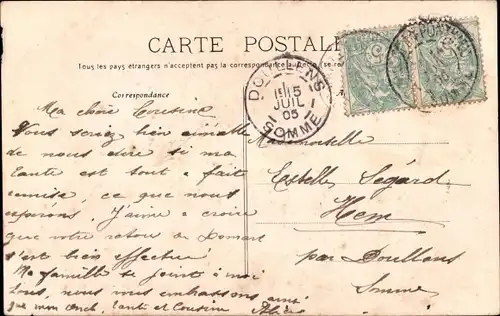 CARTE POSTALE
Tous les pays étrangers n'acceptent pas la correspondance au
Correspondance
DOULLENS
15
JUIL
05
SOMME
Ma chère Cousine
Vous seriez bien aimable
de nous dire si ma
tante est tout à fait
remise, ce que nous
espérons. J'aime à croire
que votre retour de Domart
s'est bien effectué.
Ma famille se joint à moi
tous, nous vous embrassons ainsi
que mon Oncle, tante et Cousine
Mademoiselle
Estelle Ségard
Hem
par Doullens
Somme